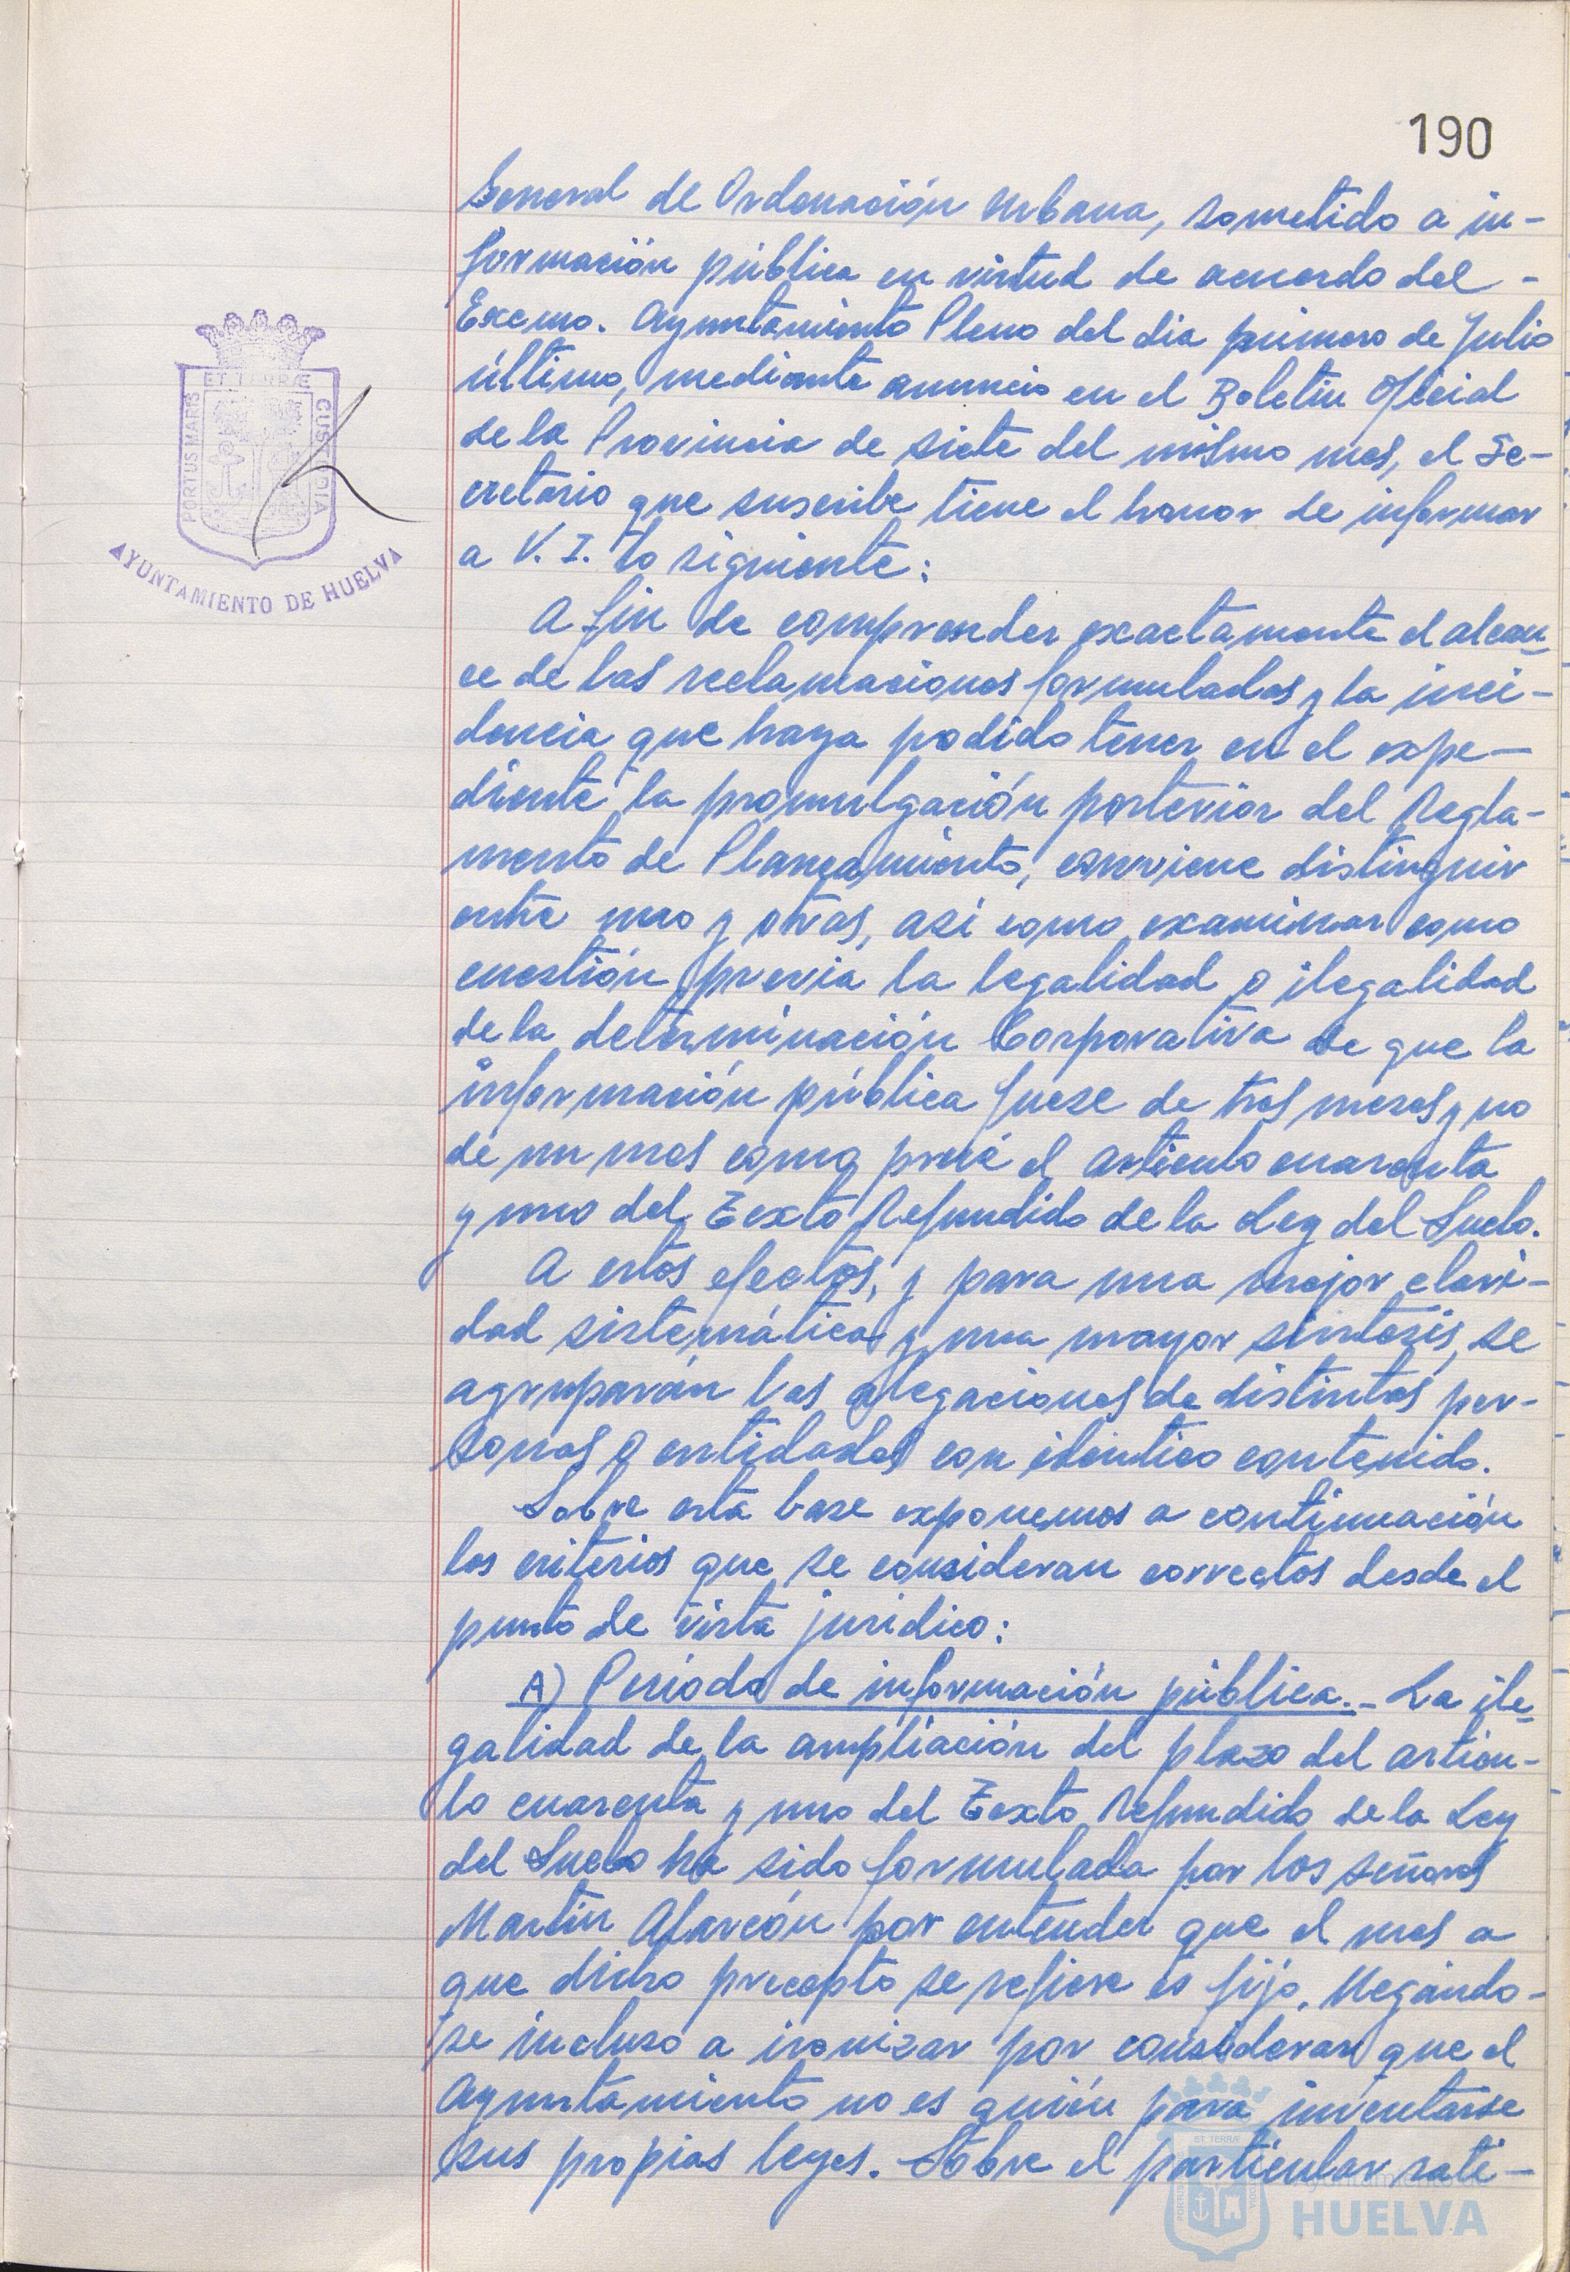 190
General de Ordenación Urbana, sometido a in-
formación pública en virtud de acuerdo del -
Excmo. Ayuntamiento Pleno del dia primero de Julio
último, mediante anuncio en el Boletin Oficial
de la Provincia de siete del mismo mes, el Se-
cretario que suscribe tiene el honor de informar
a V. I. lo siguiente:
A fin de comprender exactamente el alcan-
ce de las reclamaciones formuladas y la inci-
dencia que haya podido tener en el expe-
diente la promulgación posterior del Regla-
mento de Planeamiento, conviene distinguir
entre uno y otras, asi como examinar como
cuestión previa la legalidad o ilegalidad
de la determinación Corporativa de que la
información pública fuese de tres meses y no
de un mes como prevé el articulo cuarenta
y uno del Texto Refundido de la Ley del Suelo.
A estos efectos, y para una mejor clari-
dad sistemática y una mayor síntesis, se
agruparán las alegaciones de distintas per-
sonas o entidades con idéntico contenido.
Sobre esta base exponemos a continuación
los criterios que se consideran correctos desde el
punto de vista jurídico:
A) Período de información pública.- La ile-
galidad de la ampliación del plazo del articu-
lo cuarenta y uno del Texto Refundido de la Ley
del Suelo ha sido formulada por los señores
Martín Alarcón por entender que el mes a
que dicho precepto se refiere es fijo, llegándo-
se incluso a ironizar por considerar que el
Ayuntamiento no es quién para inventarse
sus propias leyes. Sobre el particular rati-
PORTUS MARIS ET TERRÆ CUSTODIA
AYUNTAMIENTO DE HUELVA
Ayuntamiento de
HUELVA